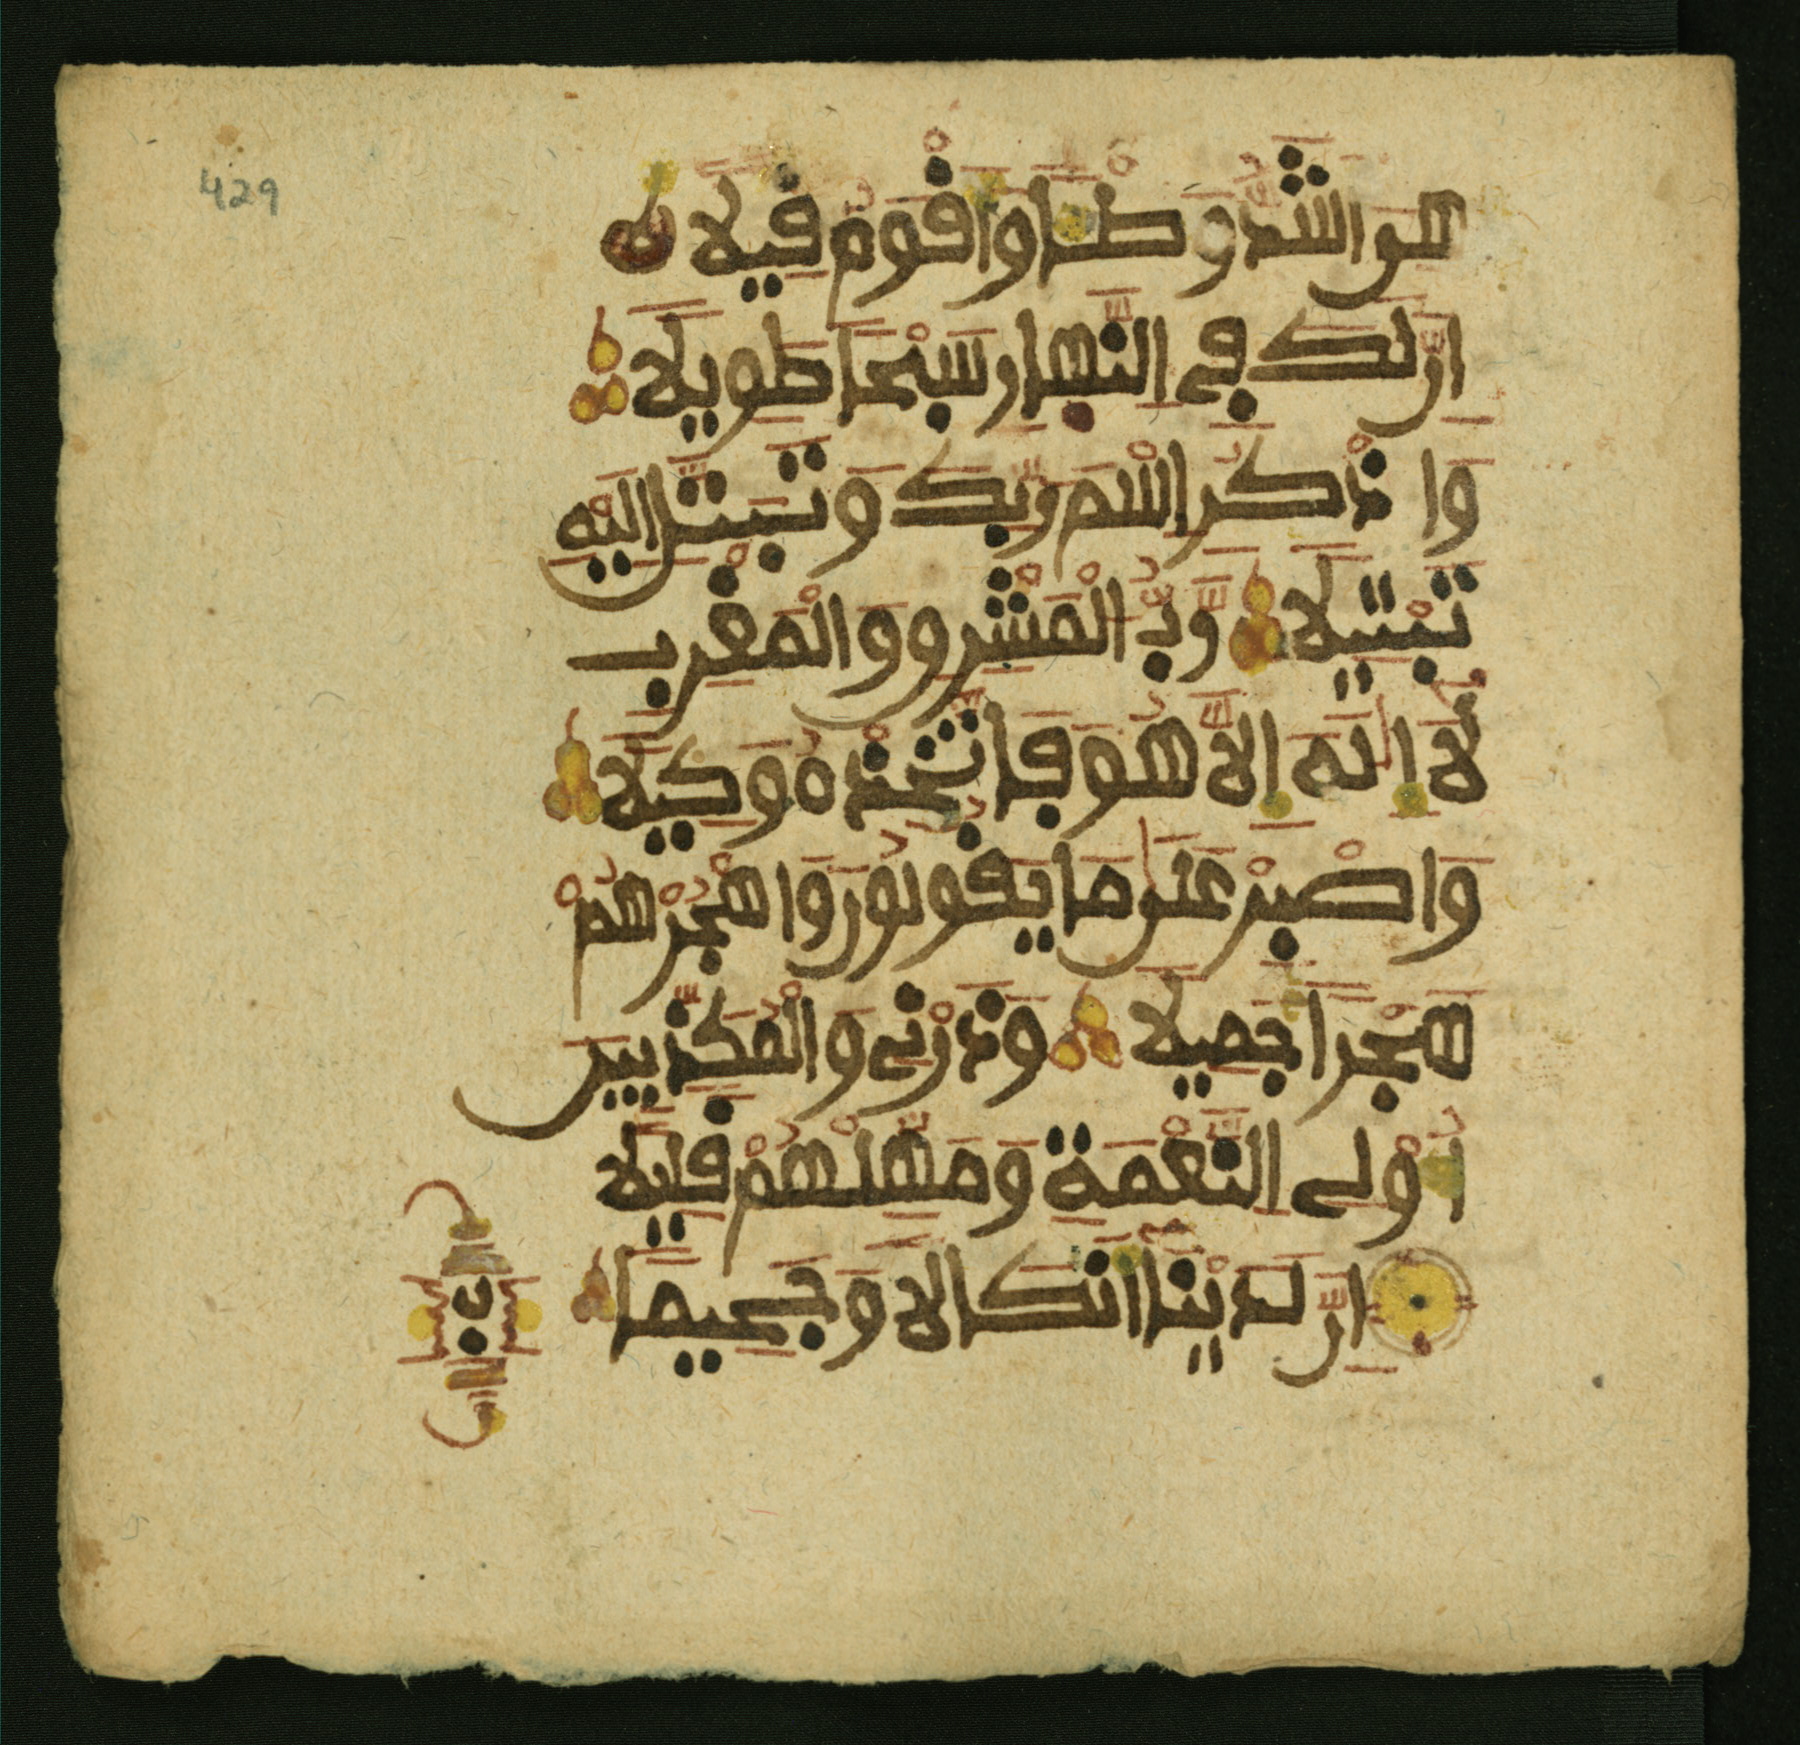 429
هِيَ أَشَدُّ وَطْـًٔا وَأَقْوَمُ قِيلًا
إِنَّ لَكَ فِي النَّهَارِ سَبْحًا طَوِيلًا
وَاذْكُرِ اسْمَ رَبِّكَ وَتَبَتَّلْ إِلَيْهِ
تَبْتِيلًا رَّبُّ الْمَشْرِقِ وَالْمَغْرِبِ
لَا إِلَٰهَ إِلَّا هُوَ فَاتَّخِذْهُ وَكِيلًا
وَاصْبِرْ عَلَىٰ مَا يَقُولُونَ وَاهْجُرْهُمْ
هَجْرًا جَمِيلًا وَذَرْنِي وَالْمُكَذِّبِينَ
أُولِي النَّعْمَةِ وَمَهِّلْهُمْ قَلِيلًا
إِنَّ لَدَيْنَا أَنكَالًا وَجَحِيمًا